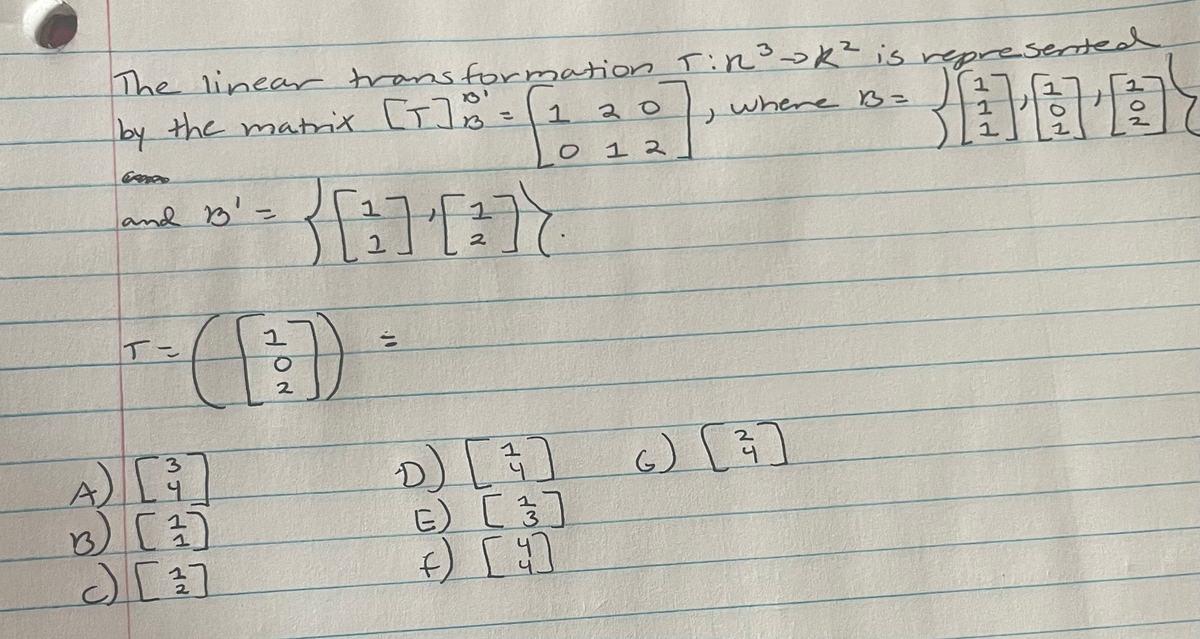 The linear transformation T:R³→R² is represented
by the matrix [T]_B^B' = [1 2 0; 0 1 2], where B = {[1; 1; 1], [1; 0; 1], [1; 0; 2]}
and B' = {[1; 1], [1; 2]}.
T = ([1; 0; 2]) =
A) [3; 4]
B) [1; 1]
C) [1; 2]
D) [1; 4]
E) [1; 3]
F) [4; 4]
G) [2; 4]